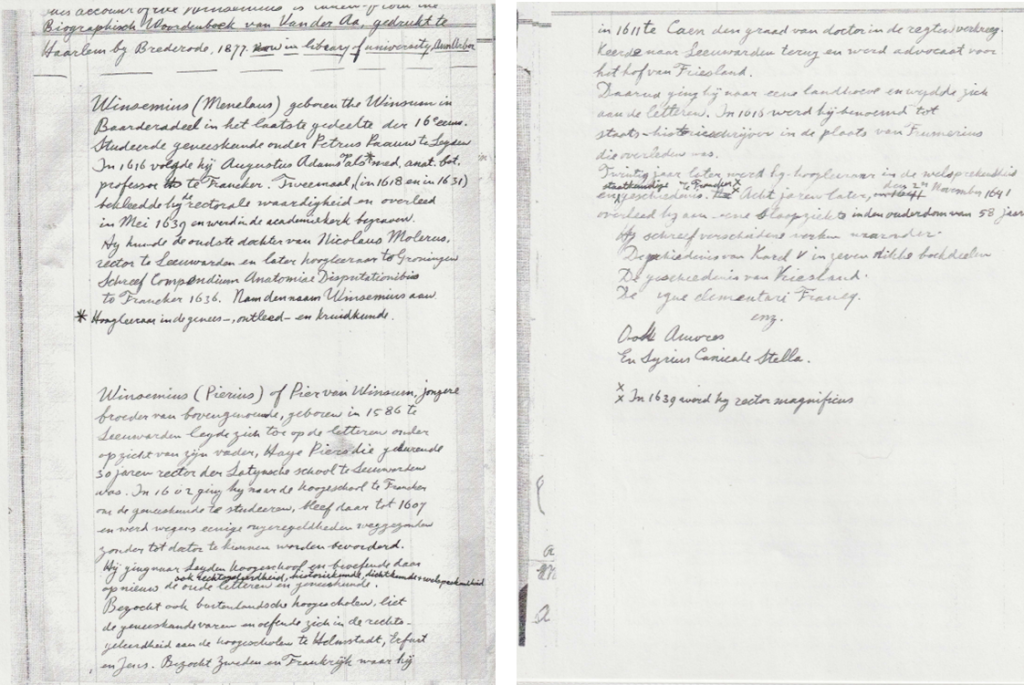 this account of the Winsemius is taken from the
Biographisch Woordenboek van Van der Aa, gedrukt te
Haarlem by Brederode, 1877. now in library of university, Ann Arbor
Winsemius (Menelaus) geboren the Winsum in
Baarderadeel in het laatste gedeelte der 16e eeuw.
Studeerde geneeskunde onder Petrus Paauw te Leyden
In 1616 volgde hij Augustus Adams op als med, anat. bot.
professor te Franeker. Tweemaal, (in 1618 en in 1631)
bekleedde hy de rectorale waardigheid en overleed
in Mei 1639 en werd in de academiekerk begraven.
Hy huwde de oudste dochter van Nicolaus Mulerus,
rector te Leeuwarden en later hoogleeraar te Groningen
Schreef Compendium Anatomiae Disputationibus
te Franeker 1636. Nam den naam Winsemius aan
* Hoogleeraar in de genees-, ontleed- en kruidkunde.
Winsemius (Pierius) of Pier van Winsum, jongere
broeder van bovengenoemde, geboren in 1586 te
Leeuwarden legde zich toe op de letteren onder
opzicht van zijn vader, Haye Piers die gedurende
30 jaren rector der Latynsche school te Leeuwarden
was. In 1602 ging hy naar de hoogeschool te Franeker
om de geneeskunde te studeeren, bleef daar tot 1607
en werd wegens eenige ongeregeldheden weggezonden
zonder tot doctor te kunnen worden bevorderd.
Hij ging naar Leyden hoogeschool en beoefende daar
ook rechtsgeleerdheid, historiekunde, dichtkunde & welsprekendheid
opnieuw de oude letteren en geneeskunde.
Bezocht ook buitenlandsche hoogescholen, liet
de geneeskunde varen en oefende zich in de rechts-
geleerdheid aan de hoogescholen te Helmstadt, Erfurt
en Jena. Bezocht Zweden en Frankrijk waar hij
in 1611 te Caen den graad van doctor in de regten verkreeg.
Keerde naar Leeuwarden terug en werd advocaat voor
het hof van Friesland.
Daarna ging hij naar eene landhoeve en wydde zich
aan de letteren. In 1616 werd hij benoemd tot
staats-historieschrijver in de plaats van Furmerius
die overleden was.
Twintig jaar later werd hy hoogleeraar in de welsprekendheid
staatkundige te Franeker x den 2n November 1641
en geschiedenis. x Acht jaren later,
overleed hy aan eene slaapziekte in den ouderdom van 58 jaar
Hy schreef verscheidene werken waaronder.
De geschiedenis van Karel V in zeven dikke boekdeelen
De geschiedenis van Vriesland.
De igne elementari Franeq.
enz.
Ook Amores
En Syrius Canicale Stella.
x
x In 1639 werd hy rector magnificus
a
a